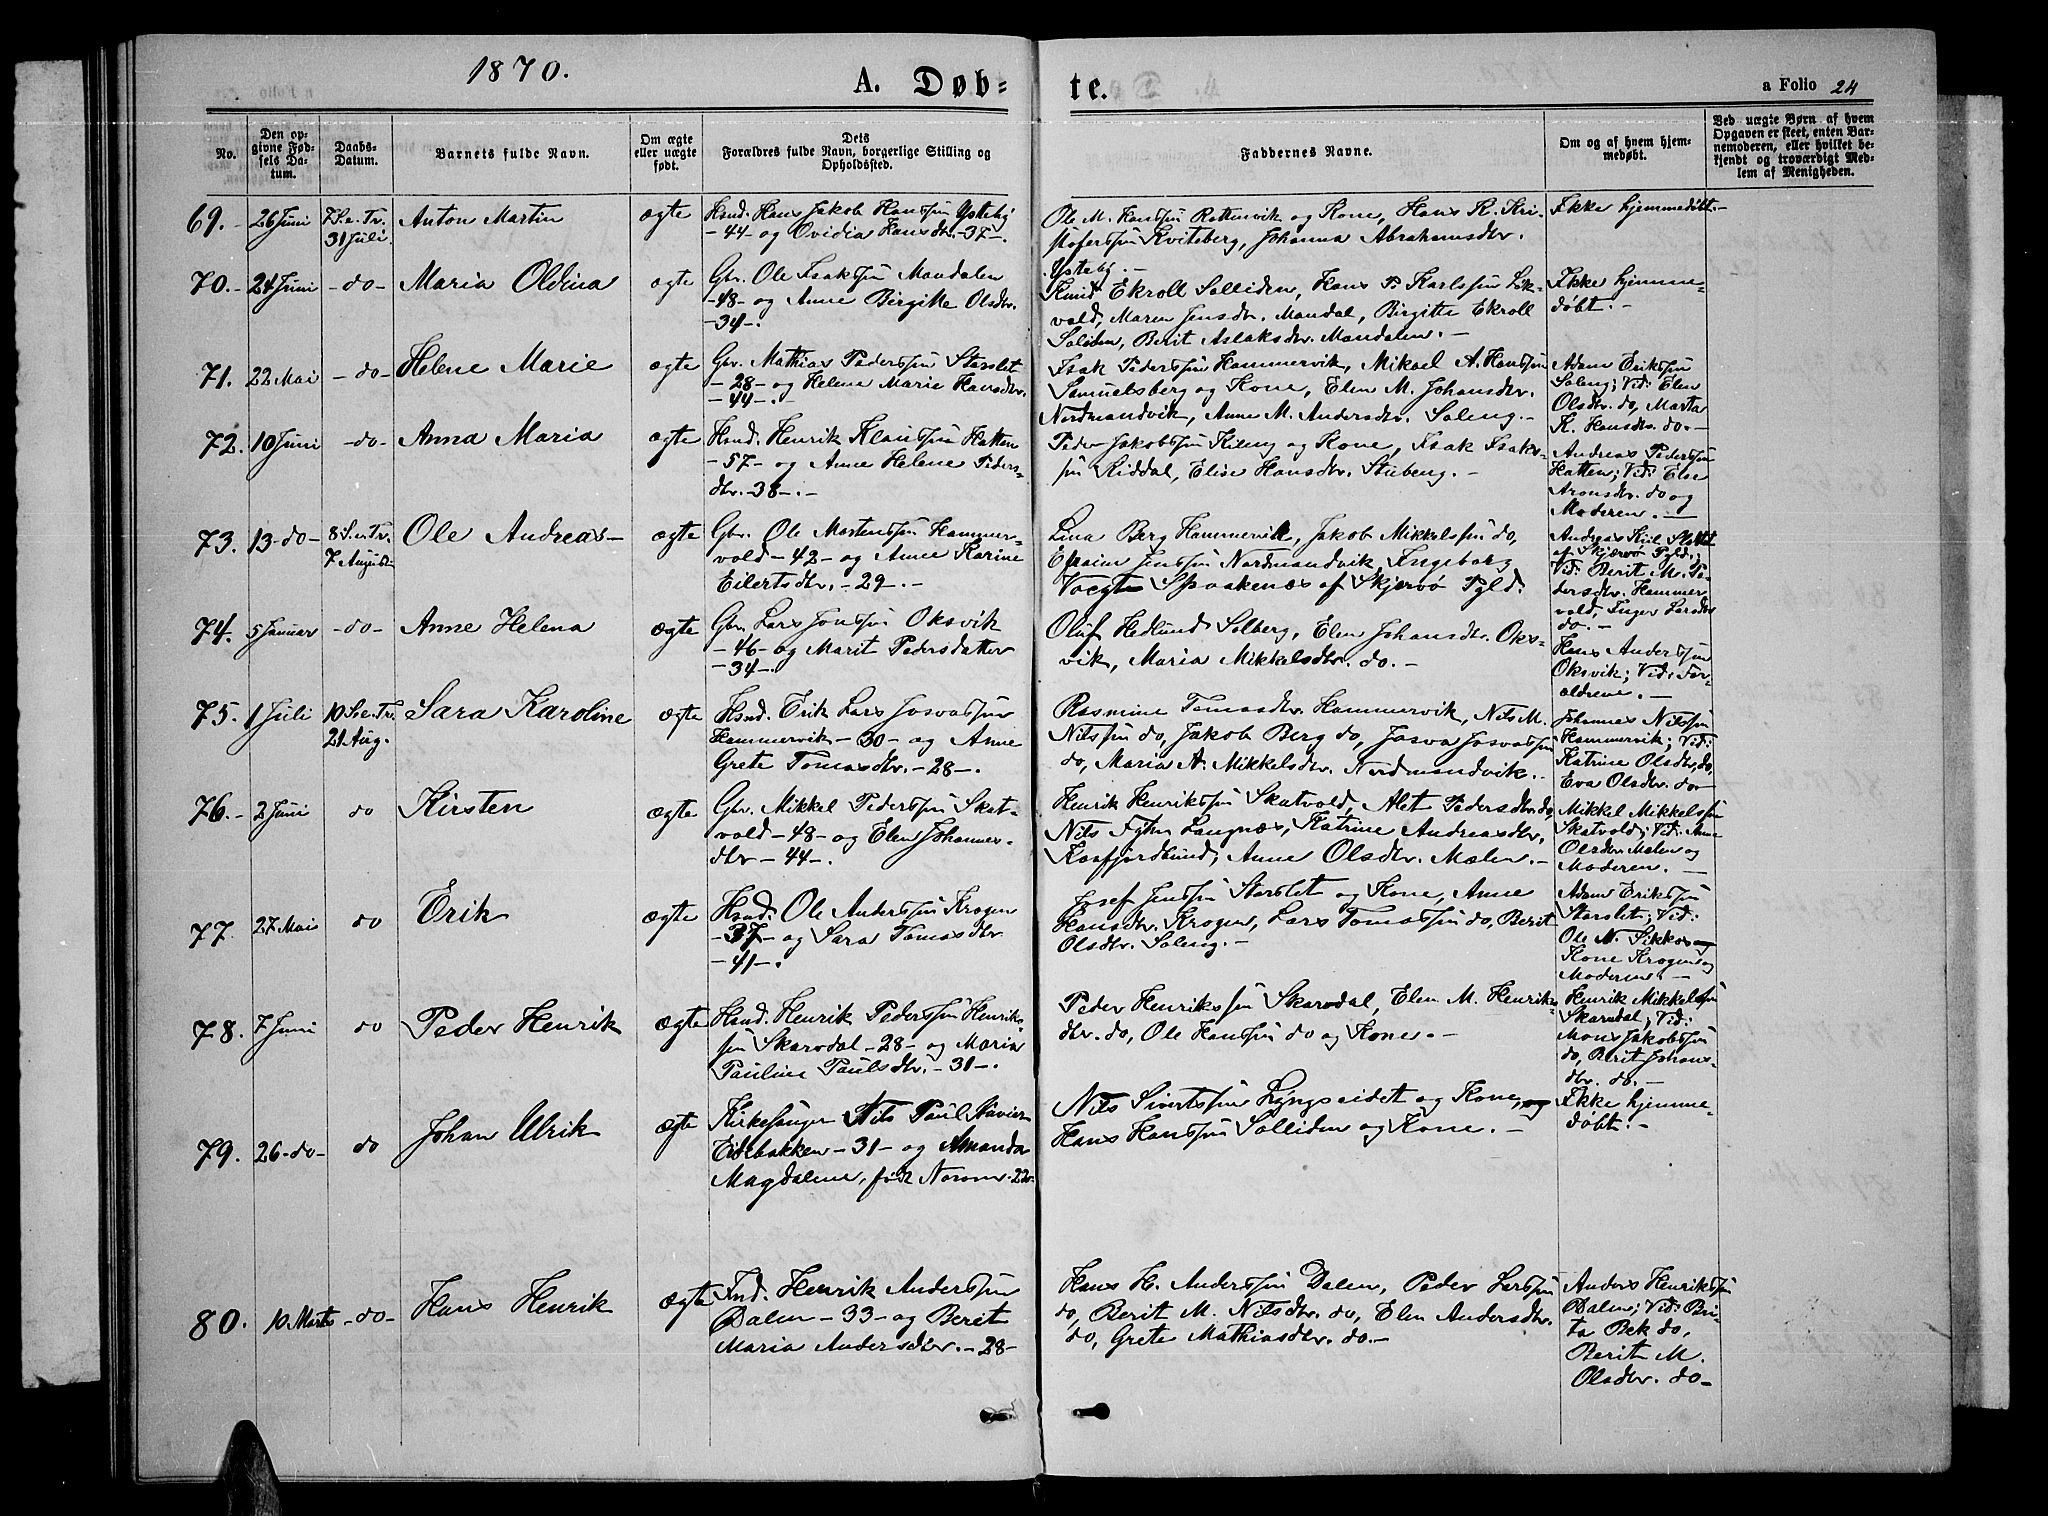 1870.
A. Døb=
te.
a Folio 24
No.
Den op-
givne Fød-
sels Da-
tum.
Daabs-
Datum.
Barnets fulde Navn.
Om ægte
eller uægte
født.
Dets
Forældres fulde Navn, borgerlige Stilling og
Opholdssted.
Faddernes Navne.
Om og af hvem hjem-
medøbt.
Ved uægte Børn af hvem
Opgaven er skeet, enten Bar-
nemoderen, eller hvilket be-
kjendt og troværdigt Med-
lem af Menigheden.
69. 26 Juni
7 S. e. Tr.
31 Juli.
Anton Martin
ægte
Hsnd. Hans Jakob Hanssøn Ysteby
-44- og Ovidia Hansdtr. -37-.
Ole M. Hanssøn Rottenvik og Kone, Hans R. Kri-
stoferssøn Kviteberg, Johanna Abrahamsdtr.
Ysteby.-
Ikke hjemmedöbt.-
70.- 24 Juni -do- Maria Oldina
ægte
Gbr. Ole Isakssøn Mandalen
-48- og Anne Birgitte Olsdtr.
-34-.
Knud Ekroll Solliden, Hans P. Karlssøn Lök-
vold, Maren Jensdtr. Mandal, Birgitte Ekroll
Soliden, Berit Aslaksdtr. Mandalen.-
Ikke hjemme-
döbt.-
71. 22 Mai -do- Helene Marie
ægte
Gbr. Mathias Pederssøn Storslet
-28- og Helene Marie Hansdtr.
-44-.
Isak Pederssøn Hammervik, Mikael A. Hanssøn
Samuelsberg og Kone, Elen M. Johansdtr.
Nordmandvik, Anne M. Andersdtr. Soleng.-
Adam Erikssøn
Soleng; Vid: Elen
Olsdtr. do, Marta
K. Hansdtr. do.-
72. 10 Juni -do- Anna Maria
ægte
Hsnd. Henrik Klaussøn Hatten
-57- og Anne Helene Peders-
dtr. 38-.-
Peder Jakobssøn Kileng og Kone, Isak Isaks-
søn Riddal, Elise Hansdtr. Stubeng.-
Andreas Pederssøn
Hatten; Vid: Else
Aronsdtr. do og
Moderen.-
73. 13-do-
8 S. e. Tr.
7 August
Ole Andreas-
ægte
Gbr. Ole Mortenssøn Hammer-
vold-42- og Anne Karine
Eilertsdtr. -29.-
Lina Berg Hammervik, Jakob Mikkelssøn do,
Efraim Jenssøn Nordmandvik, Ingeborg
Voegt Spaakenæs af Skjervö Pgld.
Andreas Kiil Slottet
af Skjærvö Pgld.;
Vid: Berit M. Pe-
dersdtr. Hammer
vold, Inger Larsdtr
do.-
74. 5 Januar -do- Anne Helena
ægte
Gbr. Lars Jonssøn Oksvik
-46- og Marit Pedersdatter
-34-.
Oluf Hedlund Solberg, Elen Johansdtr. Oks-
vik, Maria Mikkelsdtr. do.-
Hans Anderssøn
Oksvik; Vid: For-
ældrene.-
75. 1 Juli
10 S. e. Tr.
21 Aug.
Sara Karoline
ægte
Hsnd. Erik Lars Josvassøn
Hammervik -30- og Anne
Grete Tomasdtr. -28-.
Rasmine Tomasdtr. Hammervik, Nils M.
Nilssøn do, Jakob Berg do, Josva Josvassøn
do, Maria A. Mikkelsdtr. Nordmandvik.-
Johannes Nilssøn
Hammervik; Vid:
Katrine Olsdtr. do,
Eva Olsdtr. do-
76.- 2 Juni do Kirsten
ægte
Gbr. Mikkel Pederssøn Skat-
vold-48- og Elen Johannes-
dtr -44-.
Henrik Henrikssøn Skatvold, Alet Pedersdtr. do
Nils Fyhn Langnæs, Katrine Andreasdtr.
Kaafjordbund, Anne Olsdtr. Mælen.-
Mikkel Mikkelssøn
Skatvold; Vid: Anne
Olsdtr Mælen og
Moderen.-
77. 27 Mai do Erik
ægte
Hsnd. Ole Anderssøn Krogen
-37- og Sara Tomasdtr
-41-.
Josef Jenssøn Storslet og Kone, Anne
Hansdtr. Krogen, Lars Tomassøn do, Berit
Olsdtr. Soleng.-
Adam Erikssøn
Storslet; Vid:
Ole N. Sikkos og
Kone Krogen og
Moderen.-
78. 7 Juni do Peder Henrik
ægte
Hsnd. Henrik Pederssøn Henriks-
søn Skarvdal -28- og Maria
Pauline Paulsdtr. -31-.
Peder Henrikssøn Skarvdal, Elen M. Henriks-
dtr. do, Ole Hanssøn do og Kone.-
Henrik Mikkelssøn
Skarvdal; Vid:
Mons Jakobssøn
do, Berit Johans-
dtr. do.-
79. 26-do- do Johan Ulrik
ægte
Kirkesanger Nils Paul Xavier
Eidebakken -31- og Amanda
Magdalene, född Norum. 22-
Nils Sivertssøn Lyngseidet og Kone, og
Hans Hanssøn Solliden og Kone.-
Ikke hjemme-
döbt.-
80. 10 Marts -do- Hans Henrik
ægte
Ind. Henrik Anderssøn
Dalen -33- og Berit
Maria Andersdtr. -28-
Hans H. Anderssøn Dalen, Peder Larssøn
do, Berit M. Nilsdtr. do, Elen Andersdtr.
do, Grete Mathiasdtr. do-
Anders Henrikssøn
Dalen; Vid: Bri-
ta Bek do,
Berit M.
Olsdtr. do-